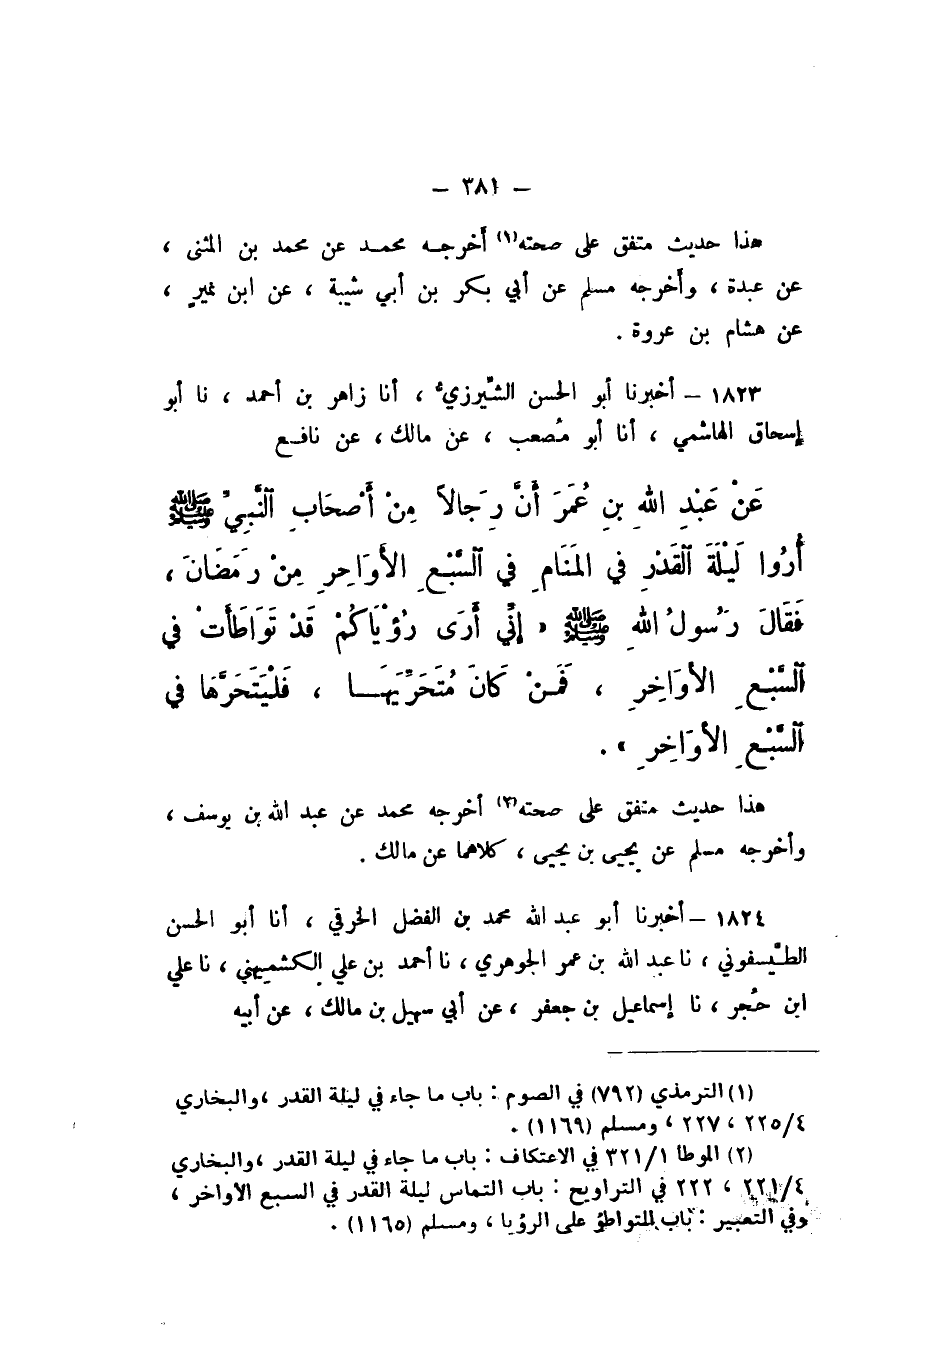 – ٣٨١ –
هذا حديث متفق على صحته(١) أخرجه محمد عن محمد بن المثنى ،
عن عبدة ، وأخرجه مسلم عن أبي بكر بن أبي شيبة ، عن ابن نميرٍ ،
عن هشام بن عروة .
١٨٢٣ – أخبرنا أبو الحسن الشِّيرزيُّ ، أنا زاهر بن أحمد ، نا أبو
إسحاق الهاشمي ، أنا أبو مُصعب ، عن مالك ، عن نافع
عَنْ عَبْدِ اللهِ بنِ عُمَرَ أَنَّ رِجَالاً مِنْ أَصْحَابِ النَّبِيِّ ﷺ
أُرُوا لَيْلَةَ القَدْرِ في المَنَامِ في السَّبْعِ الأَوَاخِرِ مِنْ رَمَضَانَ ،
فَقَالَ رَسُولُ اللهِ ﷺ « إِنِّي أَرَى رُؤْيَاكُمْ قَدْ تَوَاطَأَتْ في
السَّبْعِ الأَوَاخِرِ ، فَمَنْ كَانَ مُتَحَرِّيَهَا ، فَلْيَتَحَرَّهَا في
السَّبْعِ الأَوَاخِرِ » .
هذا حديث متفق على صحته(٢) أخرجه محمد عن عبد الله بن يوسف ،
وأخرجه مسلم عن يحيى بن يحيى ، كلاهما عن مالك .
١٨٢٤ – أخبرنا أبو عبد الله محمد بن الفضل الخرقي ، أنا أبو الحسن
الطَّيسفوني ، نا عبد الله بن عمر الجوهري ، نا أحمد بن علي الكشميهني ، نا علي
ابن حُجر ، نا إسماعيل بن جعفر ، عن أبي سهيل بن مالك ، عن أبيه
(١) الترمذي (٧٩٢) في الصوم : باب ما جاء في ليلة القدر ، والبخاري
٢٢٥/٤ ، ٢٢٧ ، ومسلم (١١٦٩) .
(٢) الموطأ ٣٢١/١ في الاعتكاف : باب ما جاء في ليلة القدر ، والبخاري
٢٢١/٤ ، ٢٢٢ في التراويح : باب التماس ليلة القدر في السبع الأواخر ،
وفي التعبير : باب التواطؤ على الرؤيا ، ومسلم (١١٦٥) .